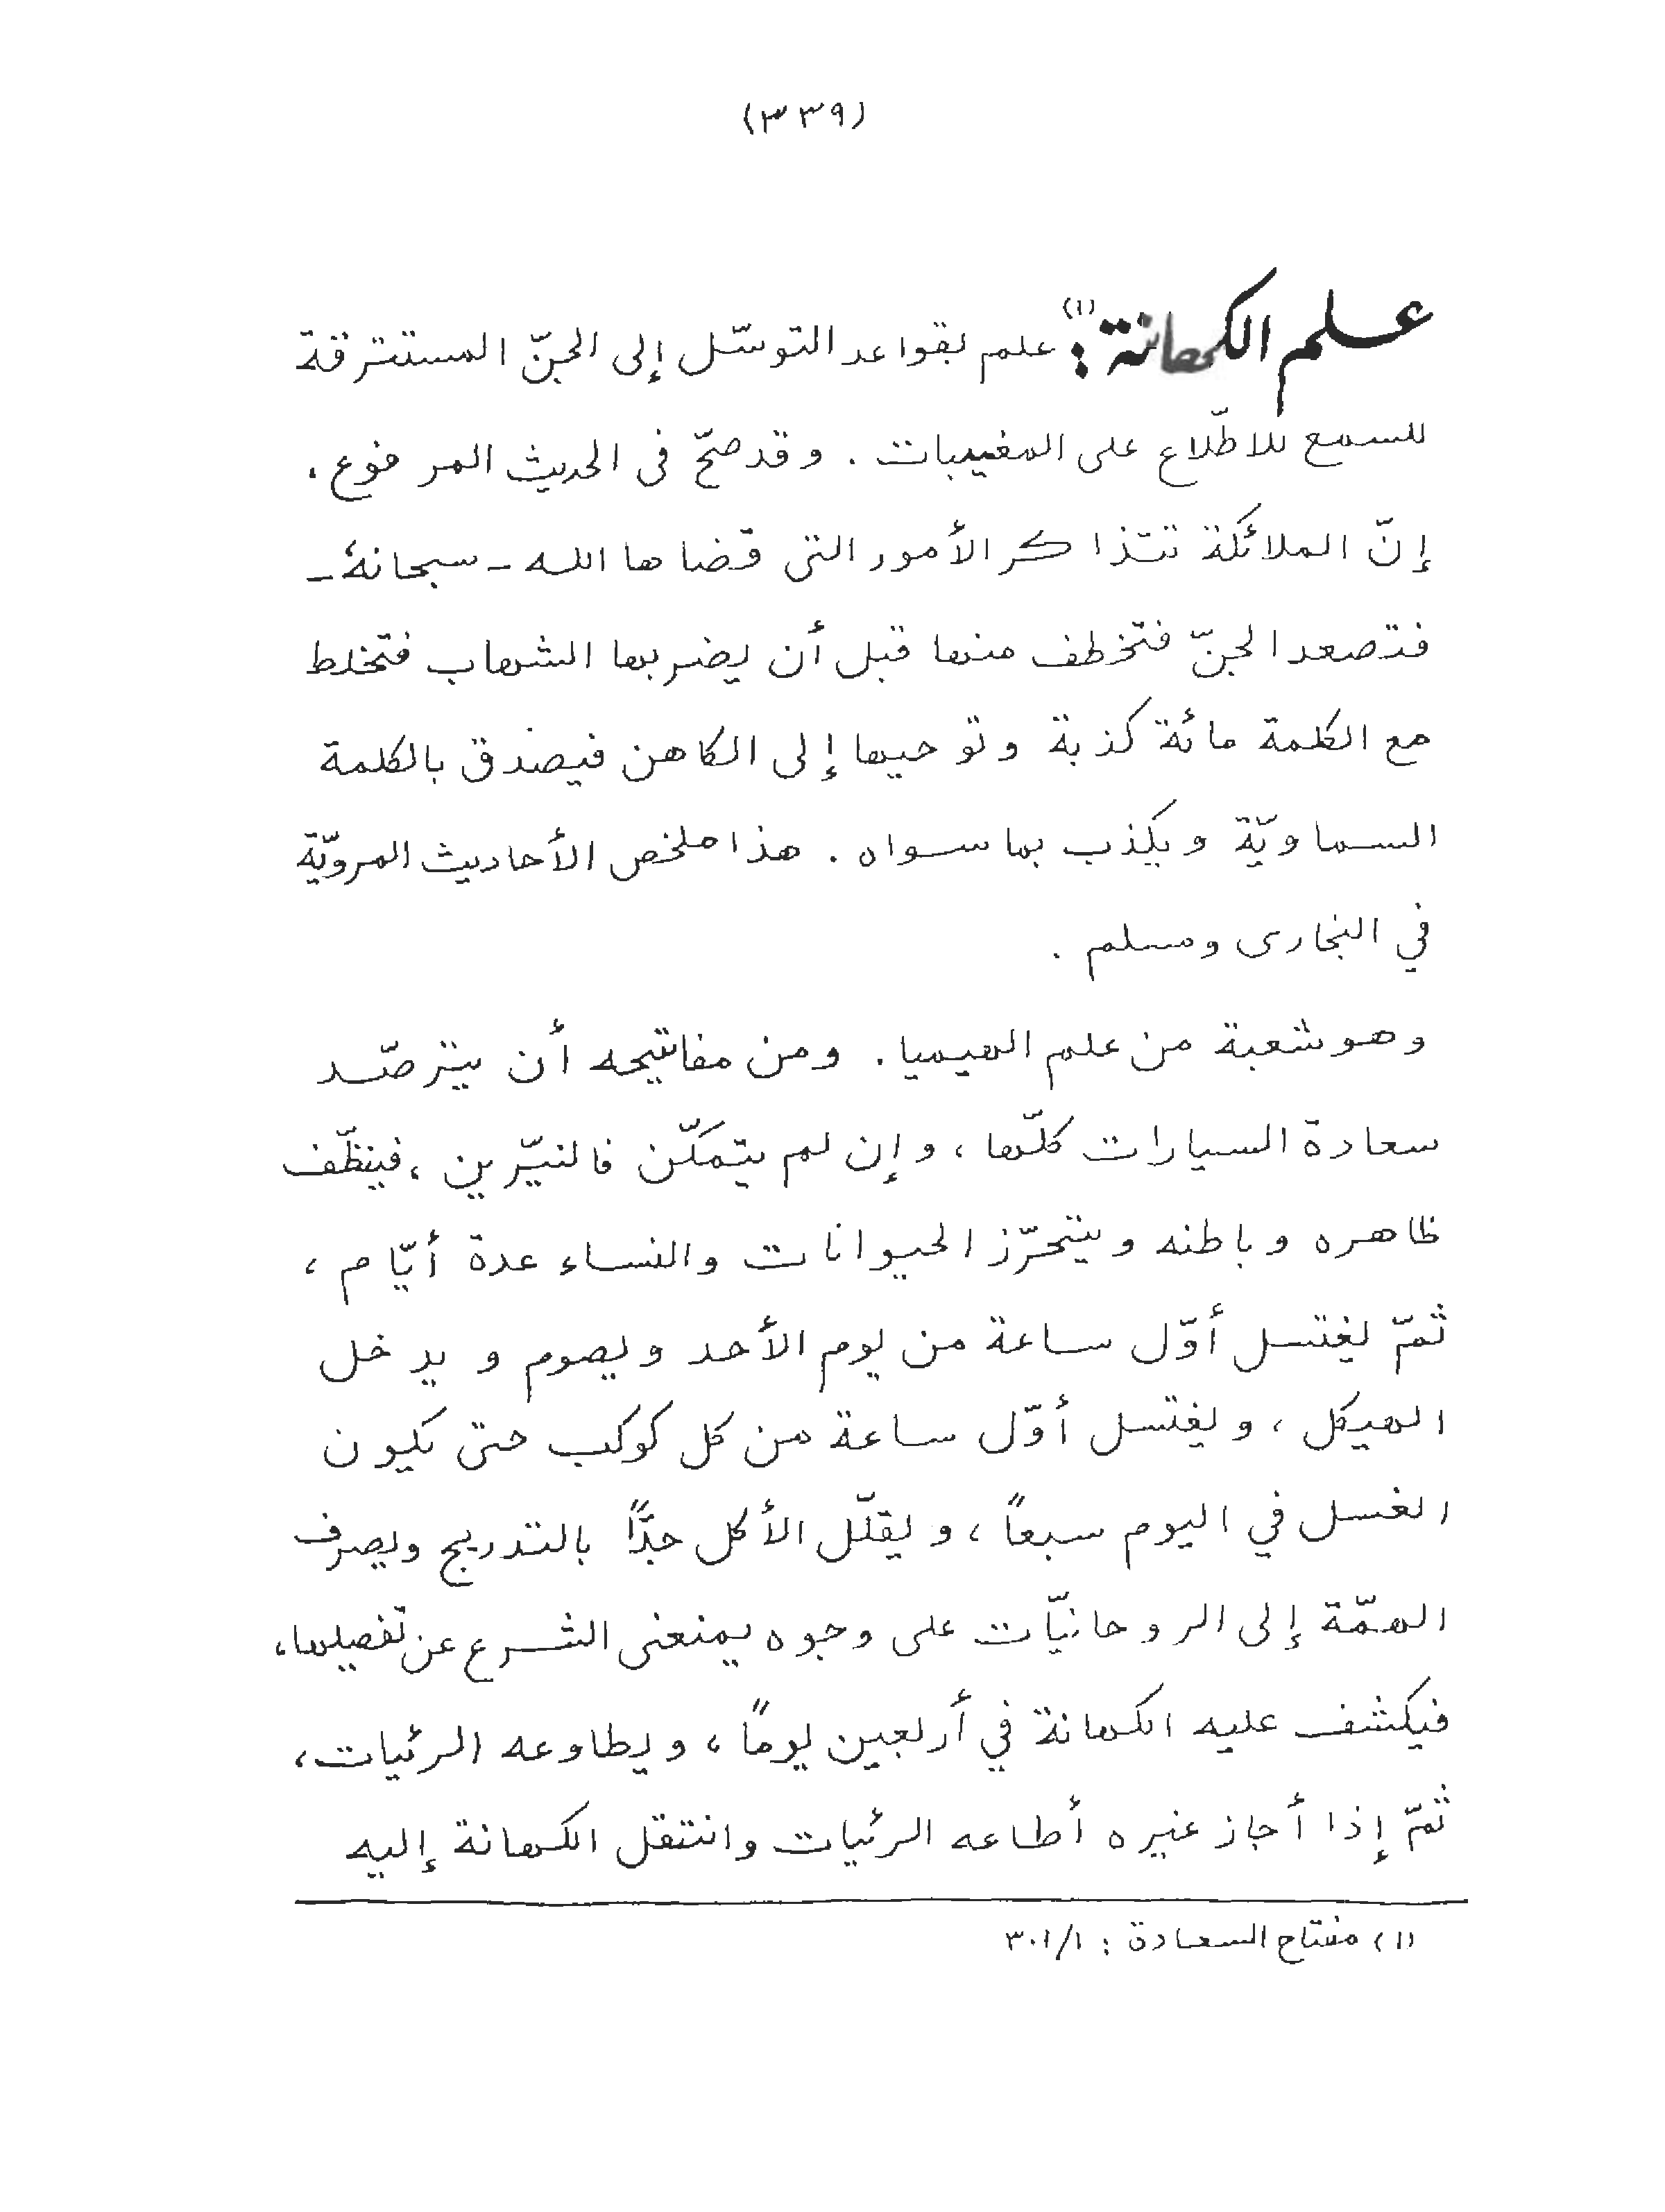 (٣٣٩)
علم الكهانة(١): علم بقواعد التوسّل إلى الجنّ المسترقة
للسمع للاطّلاع على المغيبات . وقد صحّ فى الحديث المرفوع ،
إنّ الملائكة تتذاكر الأمور التى قضاها الله - سبحانهُ -
فتصعد الجنّ فتخطف منها قبل أن يضربها الشهاب فتخلط
مع الكلمة مائة كذبة وتوحيها إلى الكاهن فيصدق بالكلمة
السماويّة ويكذب بما سواه . هذا ملخص الأحاديث المرويّة
في البخارى ومسلم .
وهو شعبة من علم الهيميا . ومن مفاتيحه أن يترصّد
سعادة السيارات كلّها ، وإن لم يتمكّن فالنيّرين ، فينظّف
ظاهره وباطنه ويتحرّز الحيوانات والنساء عدة أيّام ،
ثمّ يغتسل أوّل ساعة من يوم الأحد ويصوم ويدخل
الهيكل ، ويغتسل أوّل ساعة من كل كوكب حتى يكون
الغسل في اليوم سبعاً ، ويقلّل الأكل جدّاً بالتدريج ويصرف
الهمّة إلى الروحانيّات على وجوه يمنعنى الشرع عن تفصيلها ،
فيكشف عليه الكهانة في أربعين يوماً ، ويطاوعه الرئيات ،
ثمّ إذا أجاز غيره أطاعه الرئيات وانتقل الكهانة إليه
(١) مفتاح السعادة : ٣٠١/١